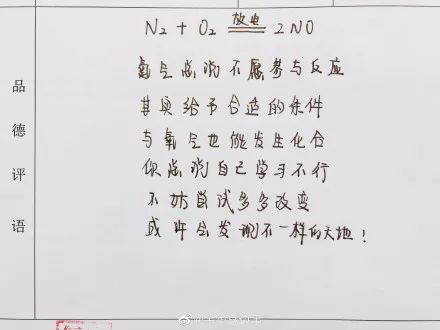 品德评语
放电
N₂ + O₂ ══ 2NO
氮气总说不愿参与反应
其实给予合适的条件
与氧气也能发生化合
你总说自己学习不行
不妨尝试多多改变
或许会发现不一样的天地！